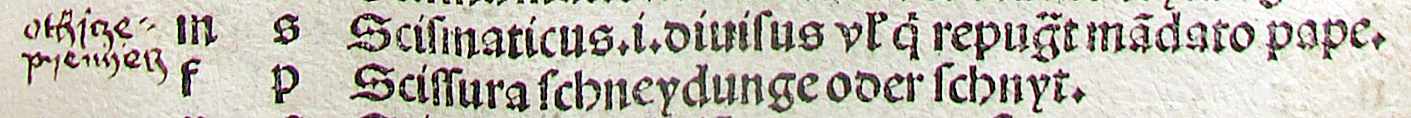 m s Sciſmaticus.i.diuiſus vł q̃ repug̃t mãdato pape.
f p Sciſſura ſchneydunge oder ſchnyt.